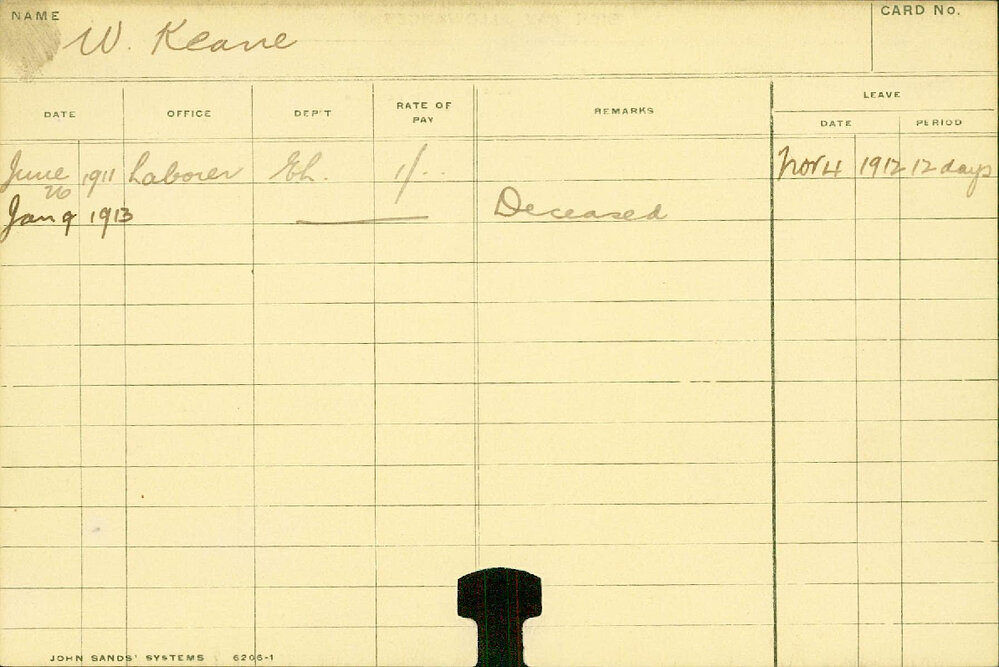 NAME W. Keane CARD No.
DATE OFFICE DEP'T RATE OF PAY REMARKS LEAVE
DATE PERIOD
June 26 1911 Laborer Eh. 1/- Nov 4 1912 12 days
Jan 9 1913 Deceased
JOHN SANDS' SYSTEMS 6206-1